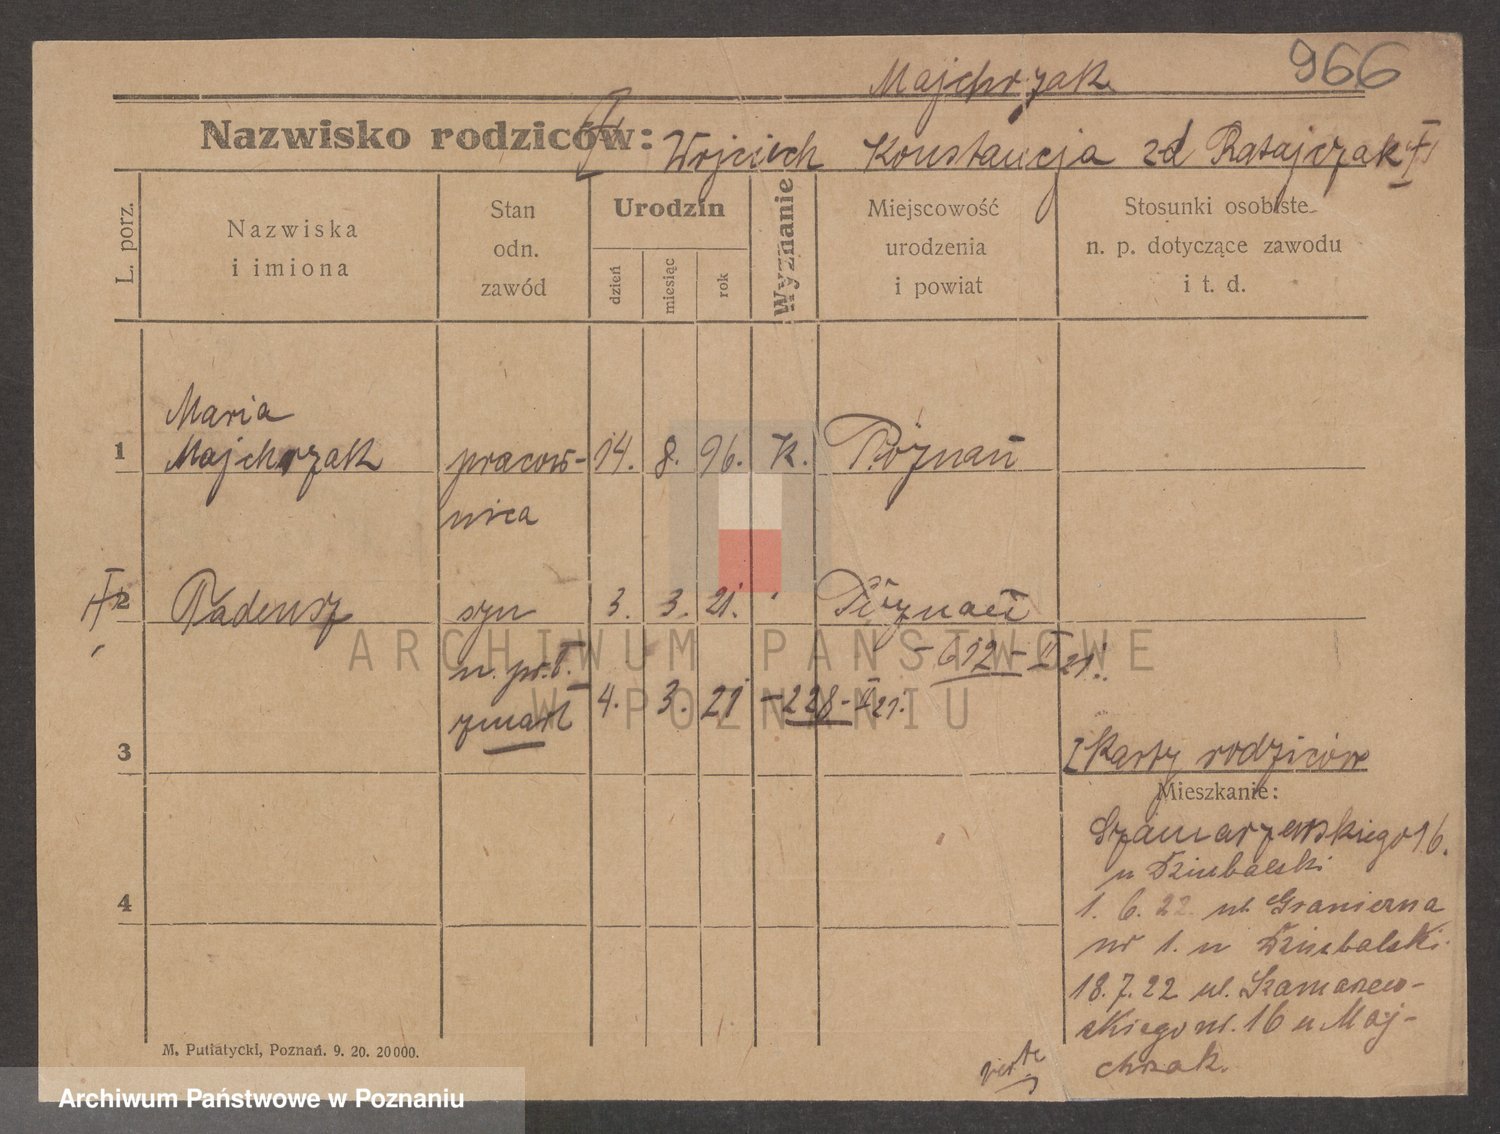 966
Majchrzak
Nazwisko rodziców: Wojciech Konstancja zd Ratajczak
L. porz.
Nazwiska
i imiona
Stan
odn.
zawód
Urodzin
dzień
miesiąc
rok
Wyznanie
Miejscowość
urodzenia
i powiat
Stosunki osobiste
n. p. dotyczące zawodu
i t. d.
Maria
1 Majchrzak pracow- 14. 8. 96. K. Poznań
nica
2 Tadeusz syn 3. 3. 21. Poznań
-612- II 21.
zmarł 4. 3. 21 -228- II 21.
3
z Karty rodziców
Mieszkanie:
Szamarzewskiego 16.
u Dziubalski
1. 6. 22. ul. Granierna
nr 1. u Dziubalski.
4
18. 7. 22 ul. Szamarzew-
skiego nr. 16 u Maj-
chrzak.
verte
M. Putiatycki, Poznań. 9. 20. 20000.
ARCHIWUM PAŃSTWOWE
W POZNANIU
Archiwum Państwowe w Poznaniu